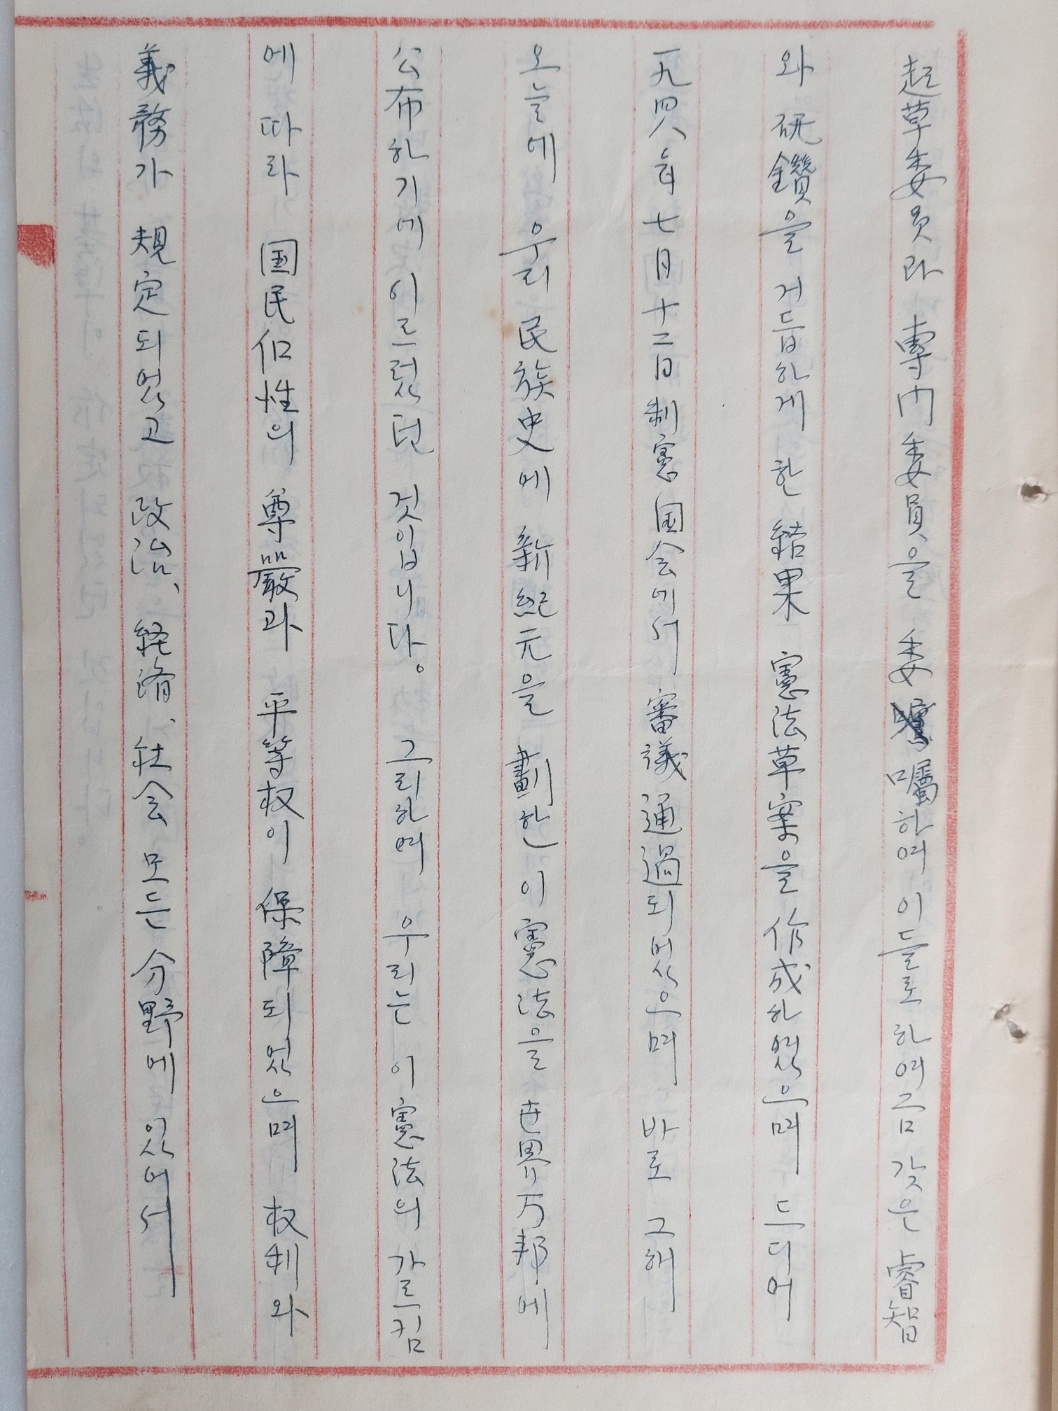 起草委员과 專门委員을 委囑하여 이들로 하여금 갖은 睿智
와 硏鑽을 거듭하게 한 結果 憲法草案을 作成하였으며 드디어
一九四八年 七月 十二日 制憲国会에서 審議通過되었으며 바로 그해
오늘에 우리 民族史에 新紀元을 劃한 이 憲法을 世界万邦에
公布하기에 이르렀던 것입니다。 그리하여 우리는 이 憲法의 가르킴
에 따라 国民個性의 尊嚴과 平等权이 保障되었으며 权利와
義務가 規定되었고 政治、経済、社会 모든 分野에 있어서